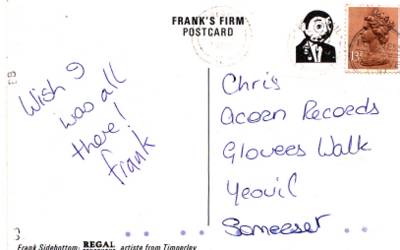 FRANK'S FIRM
POSTCARD
13P
Wish I
was all
there!
Frank
Chris
Acorn Records
Glovers Walk
Yeovil
Somerset
Frank Sidebottom: REGAL artiste from Timperley